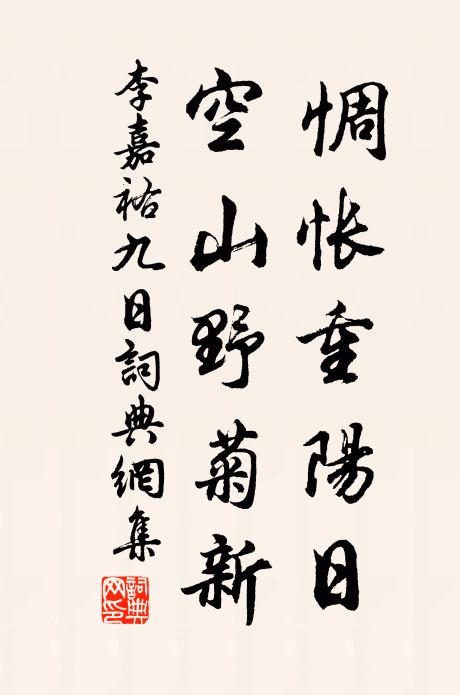 惆怅重陽日
空山野菊新
李嘉祐九日詞典網集
詞典网印